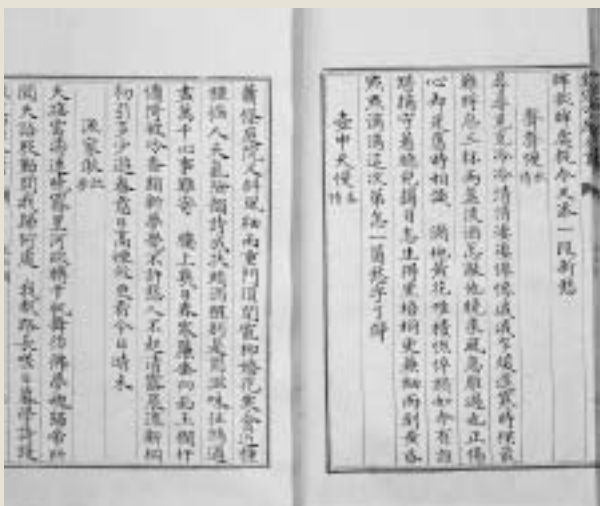 眸凝眸處從今又添一段新愁
聲聲慢 秋情
尋尋覓覓冷冷清清淒淒慘慘戚戚乍暖還寒時候最
難將息三杯兩盞淡酒怎敵他晚來風急雁過也正傷
心却是舊時相識 滿地黃花堆積憔悴損如今有誰
堪摘守着窗兒獨自怎生得黑梧桐更兼細雨到黃昏
點點滴滴這次第怎一箇愁字了得
壺中天慢 春情
蕭條庭院又斜風細雨重門須閉寵柳嬌花寒食近種
種惱人天氣險韻詩成扶頭酒醒別是閒滋味征鴻過
盡萬千心事難寄 樓上幾日春寒簾垂四面玉欄杆
慵倚被冷香銷新夢覺不許愁人不起清露晨流新桐
初引多少遊春意日高煙斂更看今日晴未
漁家傲 記夢
天接雲濤連曉霧星河欲轉千帆舞彷彿夢魂歸帝所
聞天語殷勤問我歸何處 我報路長嗟日暮學詩謾